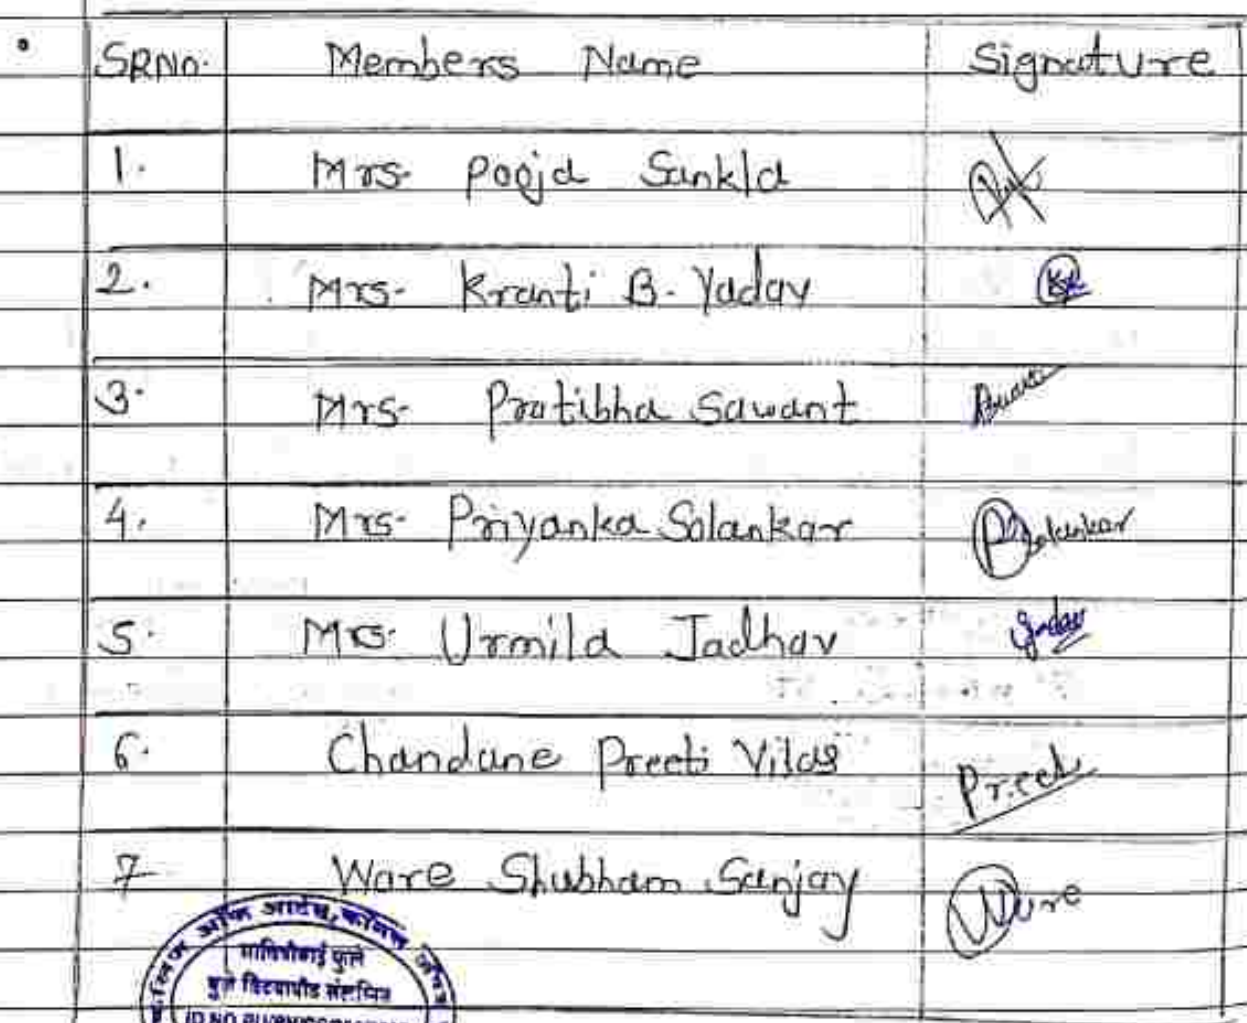 SRNo. Members Name Signature
1. Mrs. Pooja Sankla
2. Mrs. Kranti B. Yadav
3. Mrs. Pratibha Sawant
4. Mrs. Priyanka Solankar Solankar
5. Mrs. Urmila Jadhav
6. Chandane Preeti Vilas Preeti
7 Ware Shubham Sanjay Ware
ऑफ आर्टस्, कॉमर्स
सावित्रीबाई फुले
पुणे विद्यापीठ संलग्नित
ID NO.